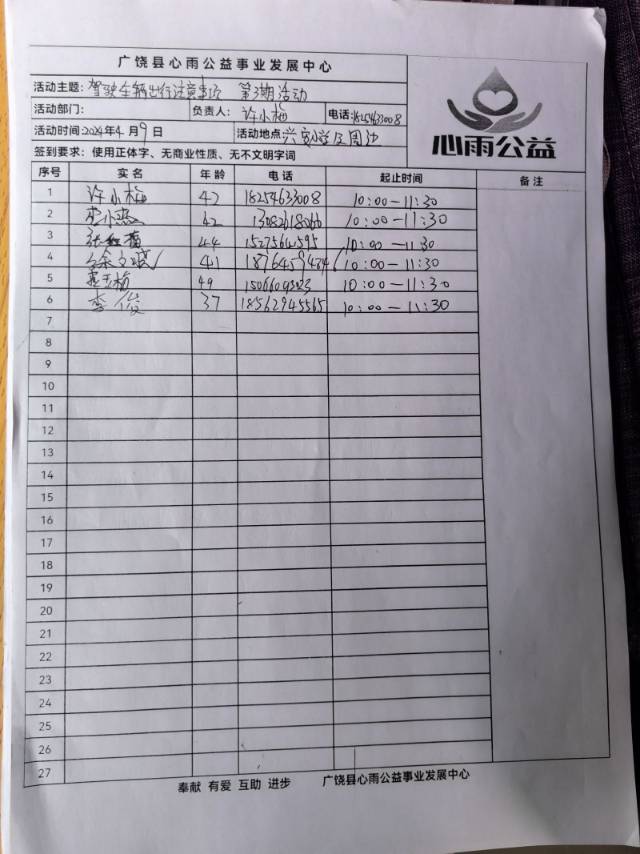 广饶县心雨公益事业发展中心
活动主题: 驾驶车辆出行注意事项 第3期活动
活动部门: 负责人: 许小梅 电话: 18254633008
活动时间: 2024年4月9日 活动地点: 小学及周边
签到要求: 使用正体字、无商业性质、无不文明字词
心雨公益
序号 实名 年龄 电话 起止时间 备注
1 许小梅 42 18254633008 10:00-11:30
2 李小燕 42 10:00-11:30
3 张红梅 44 15275641595 10:00-11:30
4 徐文 41 10:00-11:30
5 玉梅 49 10:00-11:30
6 李俊 37 18562945565 10:00-11:30
7
8
9
10
11
12
13
14
15
16
17
18
19
20
21
22
23
24
25
26
27
奉献 有爱 互助 进步 广饶县心雨公益事业发展中心